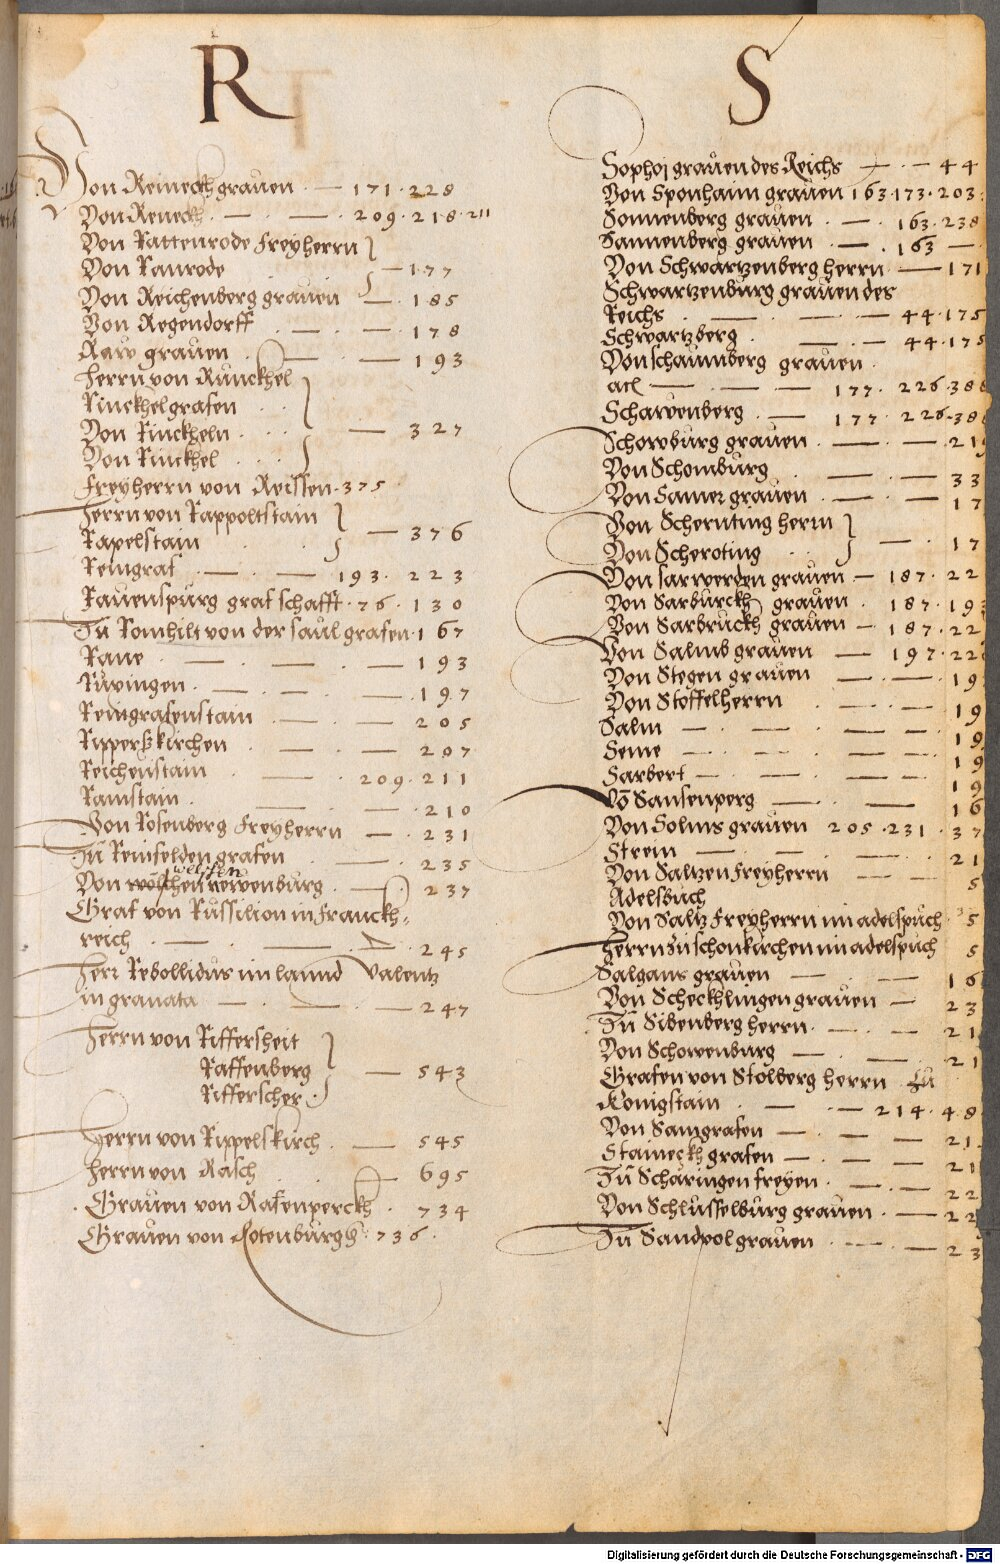 R
Von Reineckh grauen — 171 · 228
Von Reneckh — — 209 · 218 · 211
Von Rattenrode Freyherrn
Von Ranrode — 177
Von Reichenberg grauen — 185
Von Regendorff — — 178
Raw grauen — — 193
Herrn von Runckhel
Rinckhel grafen
Von Rinckheln — 327
Von Rinckhel
Freyherrn von Reissen · 375
Herrn von Rappoltstain
Rapelstain — 376
Reingraf — — 193 · 223
Rauenspurg graf schafft · 76 · 130
Zu Romhilt von der saul grafen · 167
Rane — — — 193
Ruvingen · — — — 197
Reingrafenstain — — 205
Ripperskirchen — — 207
Reichenstain — 209 · 211
Ramstain · — — 210
Von Rosenberg Freyherrn — 231
Zu Reinfelden grafen — 235
welschen
Von newenburg · — 237
Graf von Russilion in Franckh-
reich · — — 245
Herr Rebollidus im lannd Valentz
in granata — — — 247
Herrn von Riffersheit
Raffenberg — 543
Rifferscher ·
Herrn von Rippelskirch · — 545
Herrn von Rasch — 695
Grauen von Rafenperckh · 734
Grauen von Rotenburgh · 736 ·
S
Sophoj grauen des Reichs — · — 44
Von Sponhaim grauen 163 · 173 · 203 ·
Sonnenberg grauen · — 163 · 238
Sannenberg grauen — · 163 —
Von Schwartzenberg herrn — 171
Schwartzenburg grauen des
Reichs · — — — 44 · 175
Schwartzberg · — — 44 · 175
Von schaunnberg grauen
— — — 177 · 226 · 388
Scharvenberg · — 177 · 226 · 38
Schowburg grauen · — — · 21
Von Schomburg — — 33
Von Samer grauen · — — 17
Von Schernting herrn
Von Scheroting — · 17
Von sarwerden grauen — 187 · 22
Von Sarburckh grauen · 187 · 193
Von Sarbruckh grauen — 187 · 22
Von Salmb grauen — 197 · 22
Von Stegen grauen — — · 19
Von Stoffelherrn · — — 19
Salm — — — — — 19
Seine — — — — — 19
Sarbert — — — — — 19
Vō Sansenperg — — — 16
Von Solms grauen 205 · 231 · 37
Strein — — — — 21
Von Saltzen Freyherrn — — 5
Adelsbuch
Von Saltz Freyherrn im adelspuch · 5
Herrn zu schonkirchen im adelspuch 5
Salgans grauen — — 16
Von Schecklingen grauen — 23
Zu Sibenberg herrn · — — 21
Von Schowenburg — — 21
Grafen von Stolberg herrn Zu
Konigstain · — — 214 · 48
Von Saingrafen — — — 21
Staineckh grafen — — — 21
Zu Scharingen freyen · — — 22
Von Schlusselburg grauen · — 22
Zu Sandpol grauen — — 23
Digitalisierung gefördert durch die Deutsche Forschungsgemeinschaft - DFG